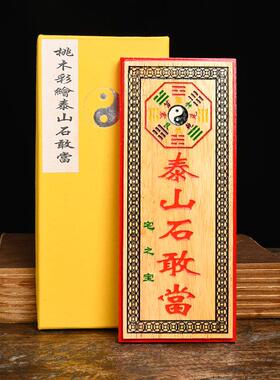 桃木彩繪泰山石敢當
泰山石敢當
宅之宝